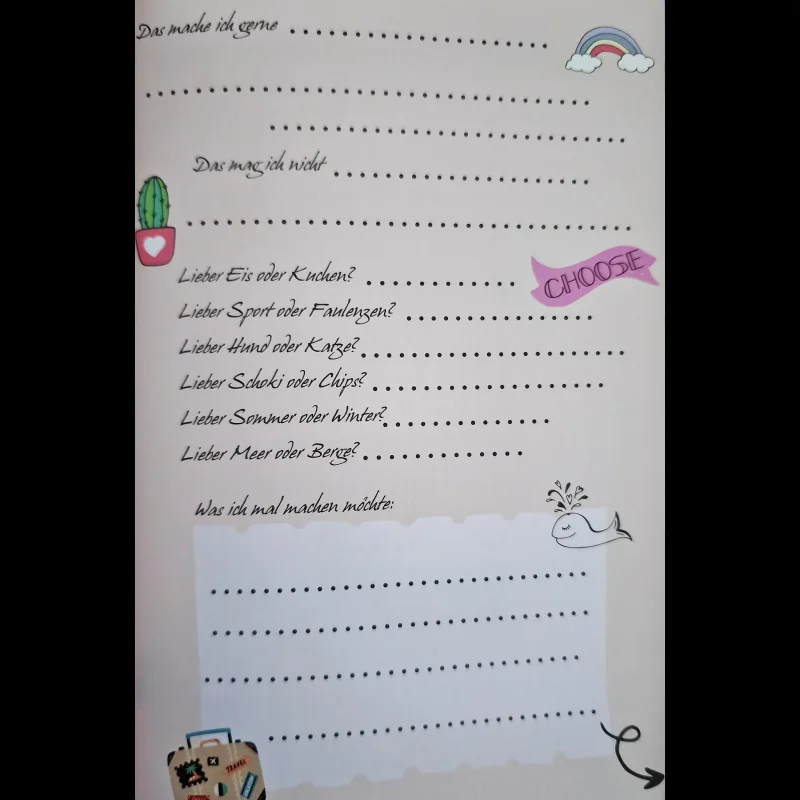 Das mache ich gerne
Das mag ich nicht
CHOOSE
Lieber Eis oder Kuchen?
Lieber Sport oder Faulenzen?
Lieber Hund oder Katze?
Lieber Schoki oder Chips?
Lieber Sommer oder Winter?
Lieber Meer oder Berge?
Was ich mal machen möchte:
TRAVEL